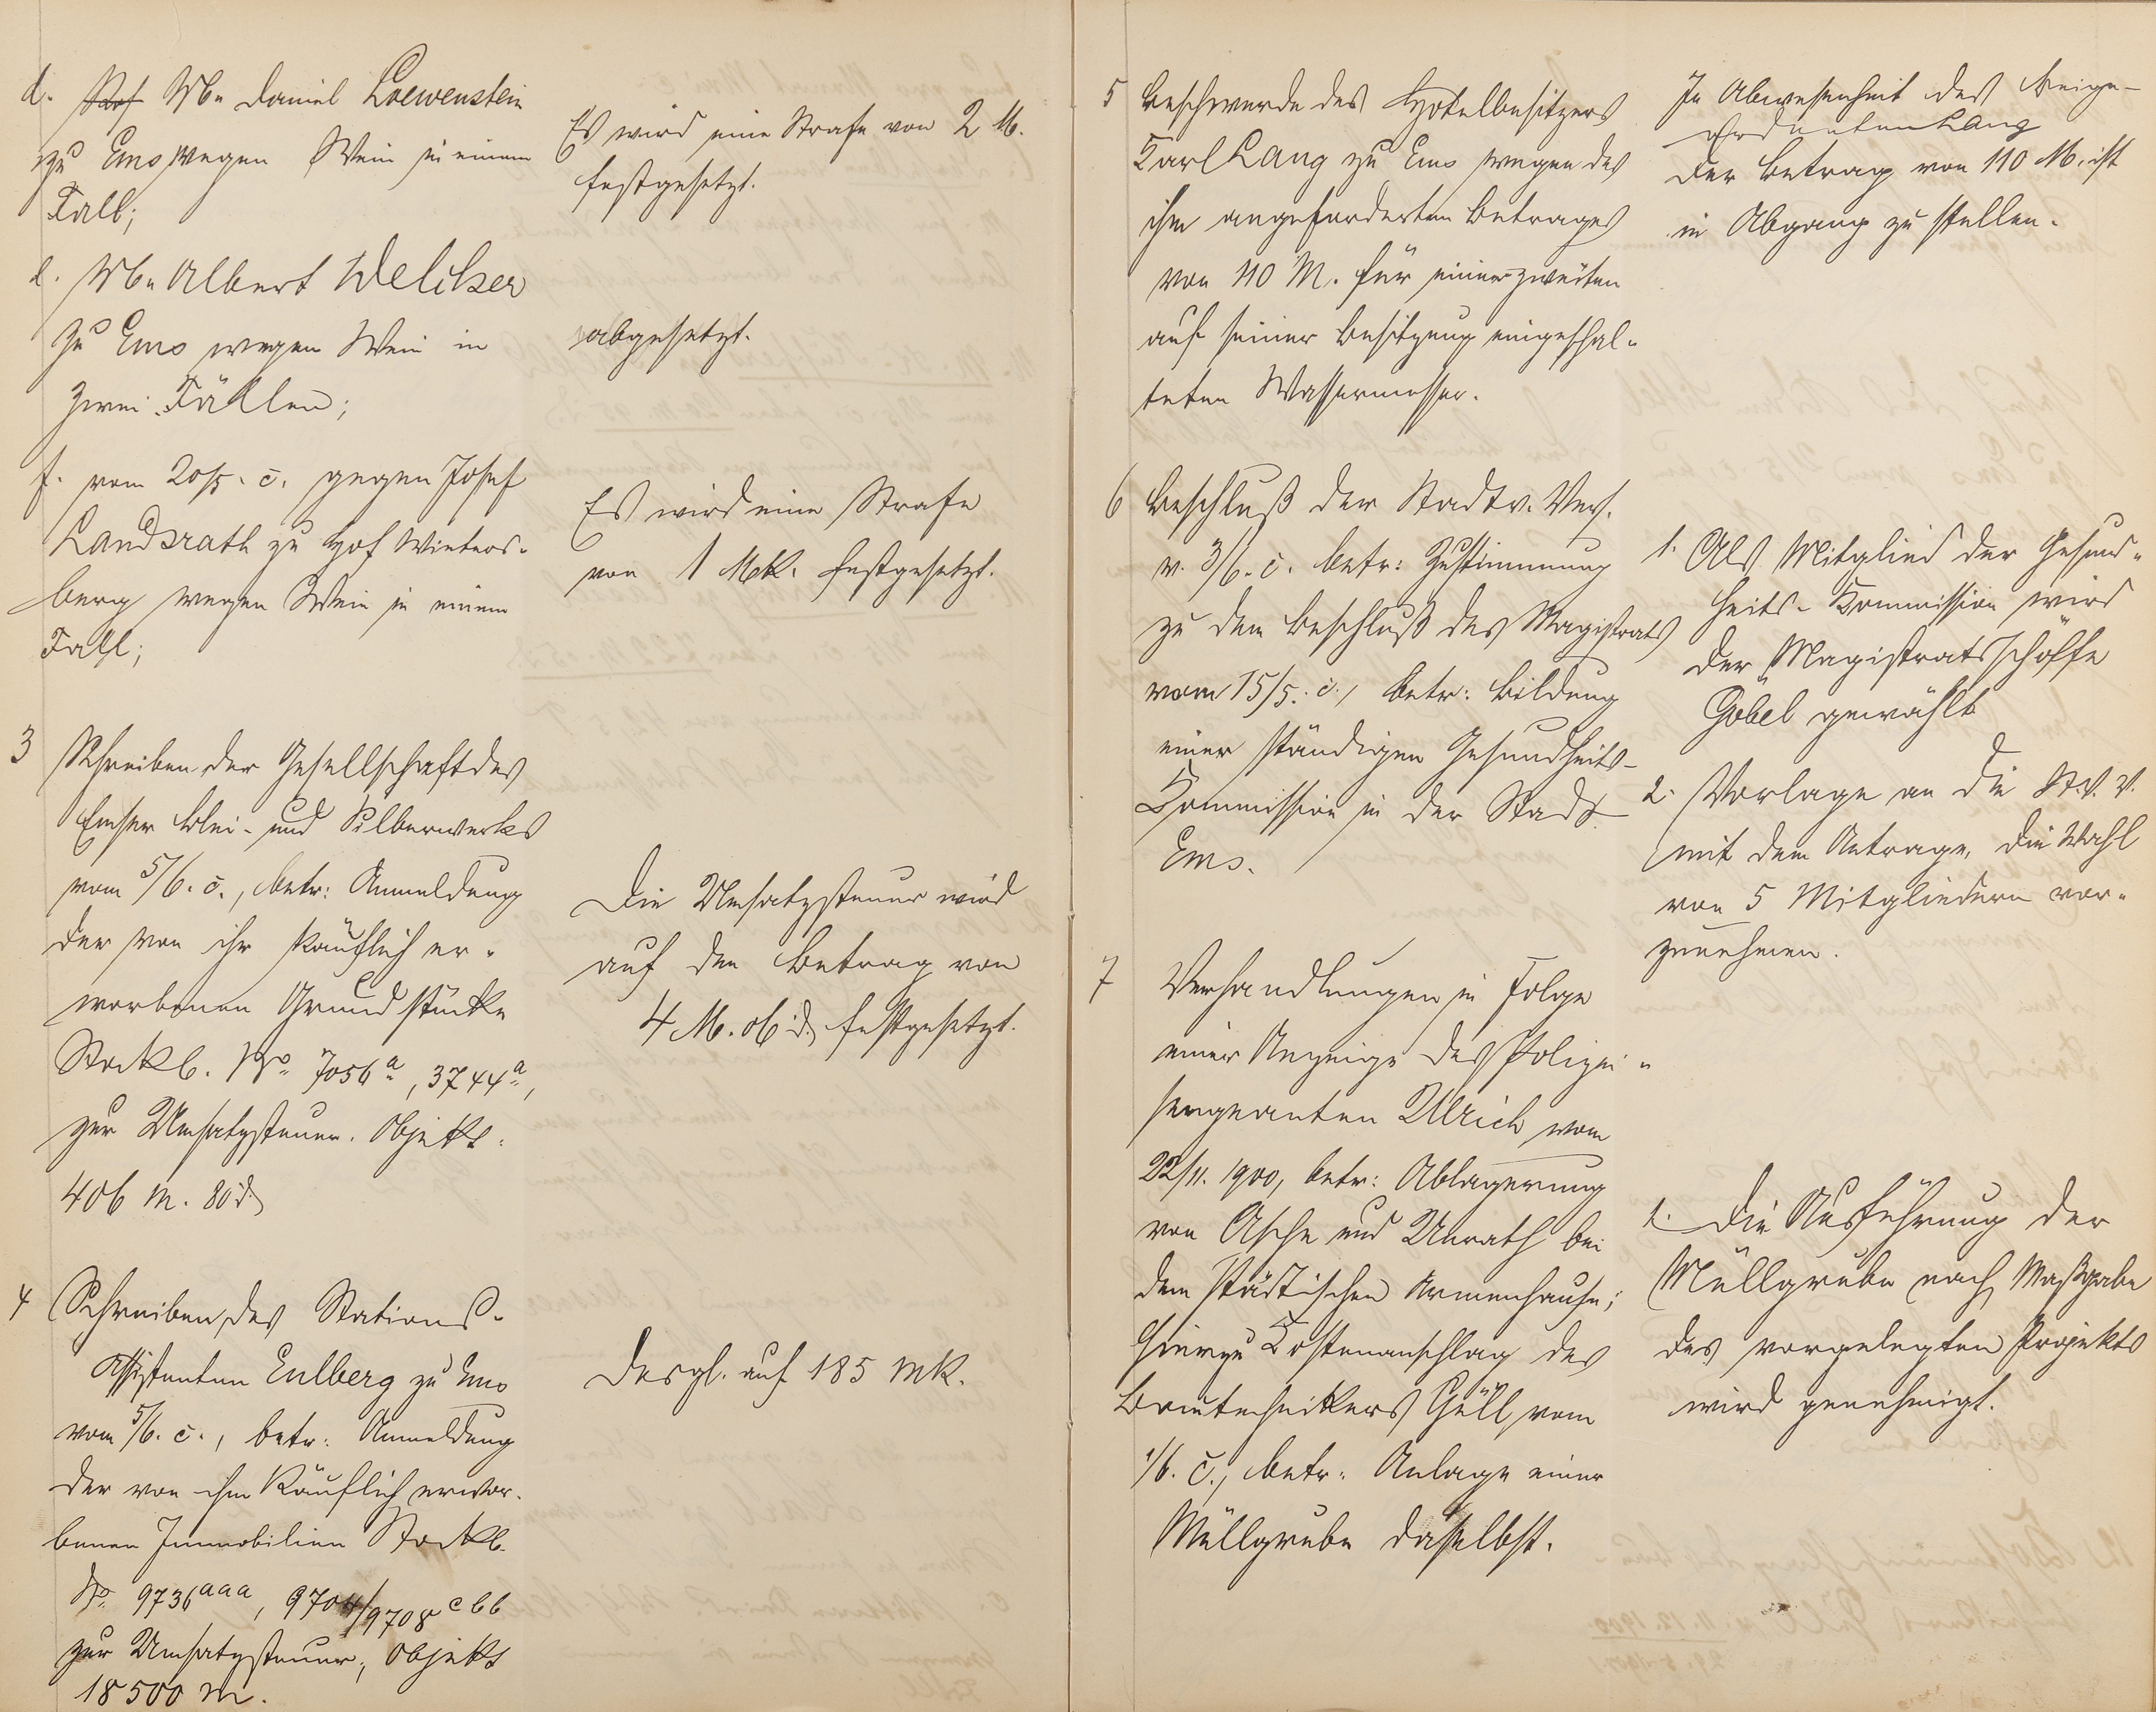 d. Wb. Daniel Loewenstein
zu Ems wegen Wein in einem
Fall;
Es wird eine Strafe von 2 M.
festgesetzt.
e. Wb. Albert Welcker
zu Ems wegen Wein in
zwei Fällen;
abgesetzt.
f. vom 20/5. c. gegen Josef
Landsrath zu Hof Winters-
berg wegen Wein in einem
Fall;
Es wird eine Strafe
von 1 Mk. festgesetzt.
3 Schreiben der Gesellschaft des
Emser Blei- und Silberwerks
vom 5/6. c., betr: Anmeldung
der von ihr käuflich er-
worbenen Grundstücke
Stockb. No. 7056a, 3744a,
zur Umsatzsteuer. Objekt:
406 M. 80 d
Die Umsatzsteuer wird
auf den Betrag von
4 M. 06 d festgesetzt.
4 Schreiben des Stations-
Assistenten Eulberg zu Ems
vom 5/6. c., betr: Anmeldung
der von ihm käuflich erwor-
benen Immobilien Stockb.
No. 9736aaa, 9704/9708cbb
zur Umsatzsteuer; Objekt
18500 M.
Desgl. auf 185 Mk.
5 Beschwerde des Hotelbesitzers
Karl Lang zu Ems wegen des
ihm angeforderten Betrages
von 110 M. für einen zweiten
auf seiner Besitzung eingeschal-
teten Wassermesser.
In Abwesenheit des Beige-
ordneten Lang
Der Betrag von 110 M. ist
in Abgang zu stellen.
6 Beschluß der Stadtv. Vers.
v. 3/6. c. betr: Zustimmung
zu dem Beschluß des Magistrats
vom 15/5. c., betr: Bildung
einer ständigen Gesundheits-
Kommission in der Stadt
Ems.
1. Als Mitglied der Gesund-
heits-Kommission wird
der Magistratsschöffe
Göbel gewählt
2. Vorlage an die St.V.V.
mit dem Antrage, die Wahl
von 5 Mitgliedern vor-
zunehmen.
7 Verhandlungen in Folge
einer Anzeige des Polizei-
sergeanten Ulrich vom
22/11. 1900, betr: Ablagerung
von Asche und Unrath bei
dem städtischen Armenhause;
hierzu Kostenanschlag des
Bautechnikers Güll vom
1/6. c., betr: Anlage einer
Müllgrube daselbst.
1. Die Ausführung der
Müllgrube nach Maßgabe
des vorgelegten Projekts
wird genehmigt.